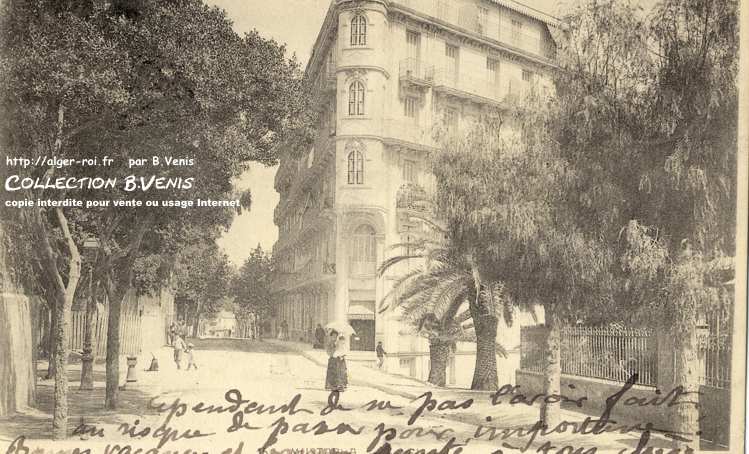 http://alger-roi.fr par B.Venis
Collection B.Venis
copie interdite pour vente ou usage Internet
cependant de ne pas l'avoir fait
au risque de passer pour
Bonnes vacances et santé à tous